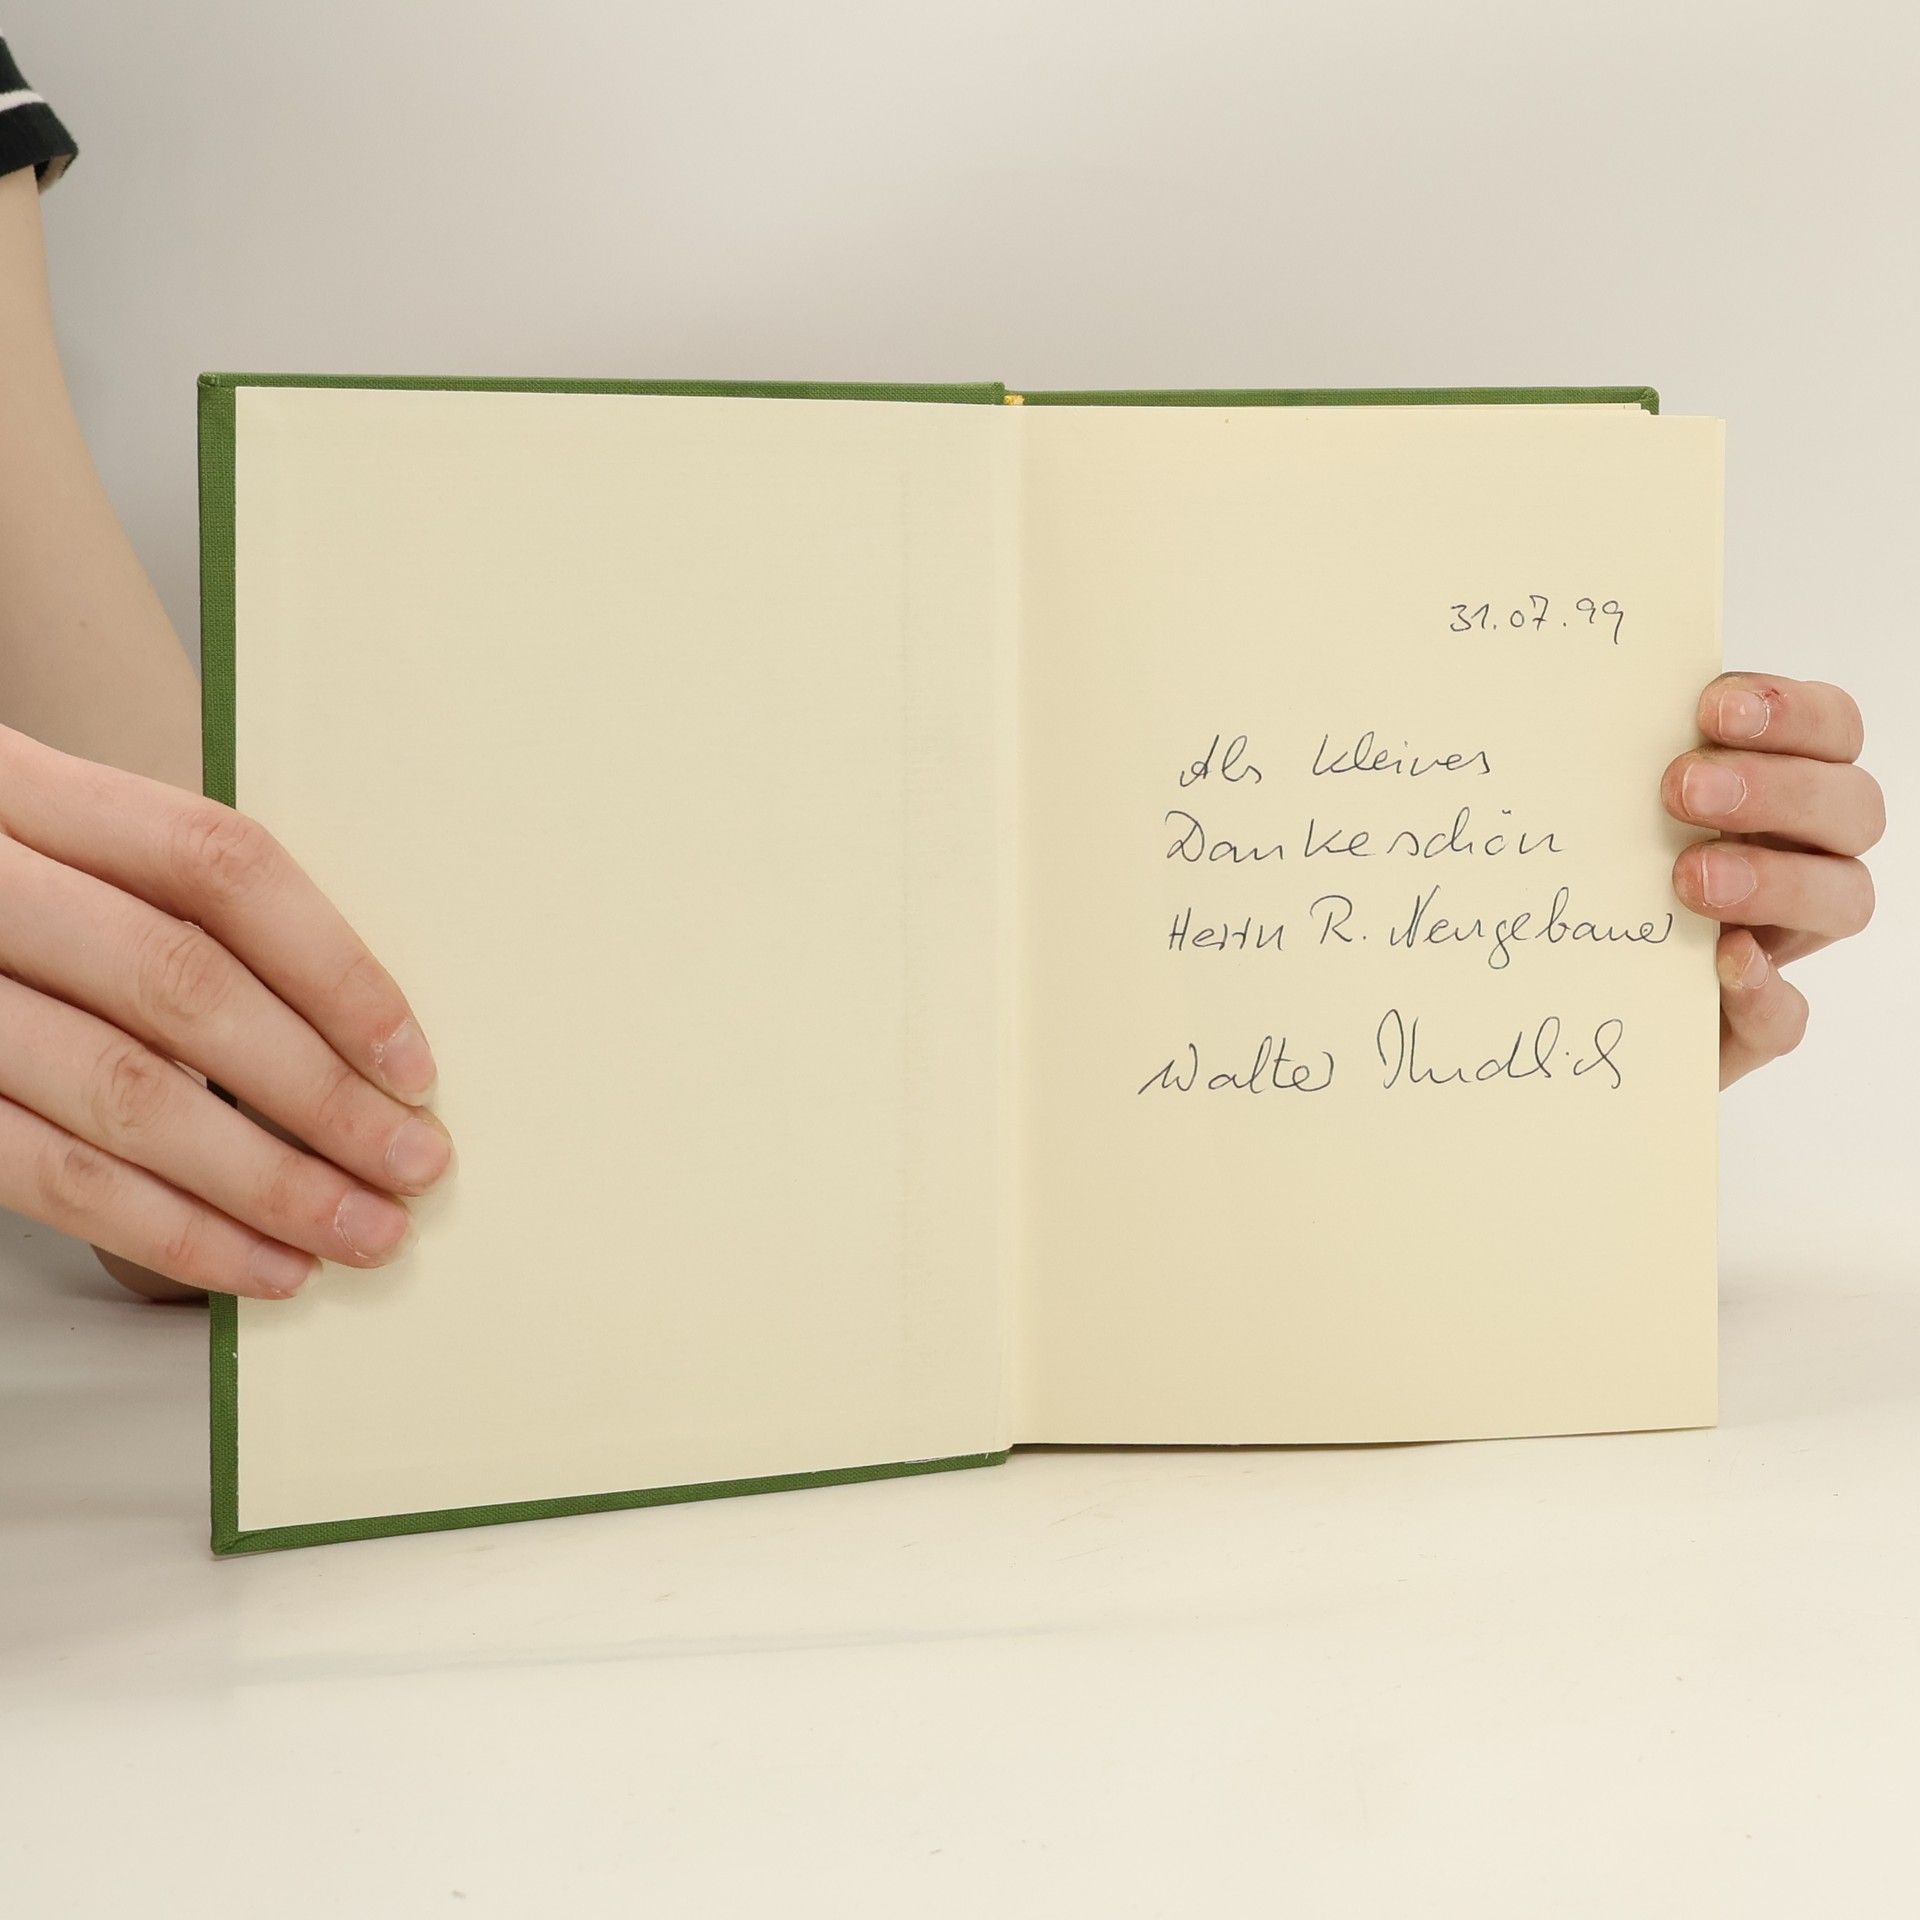 31.07.99
Als kleines
Dankeschön
Herrn R. Neugebauer
Walter